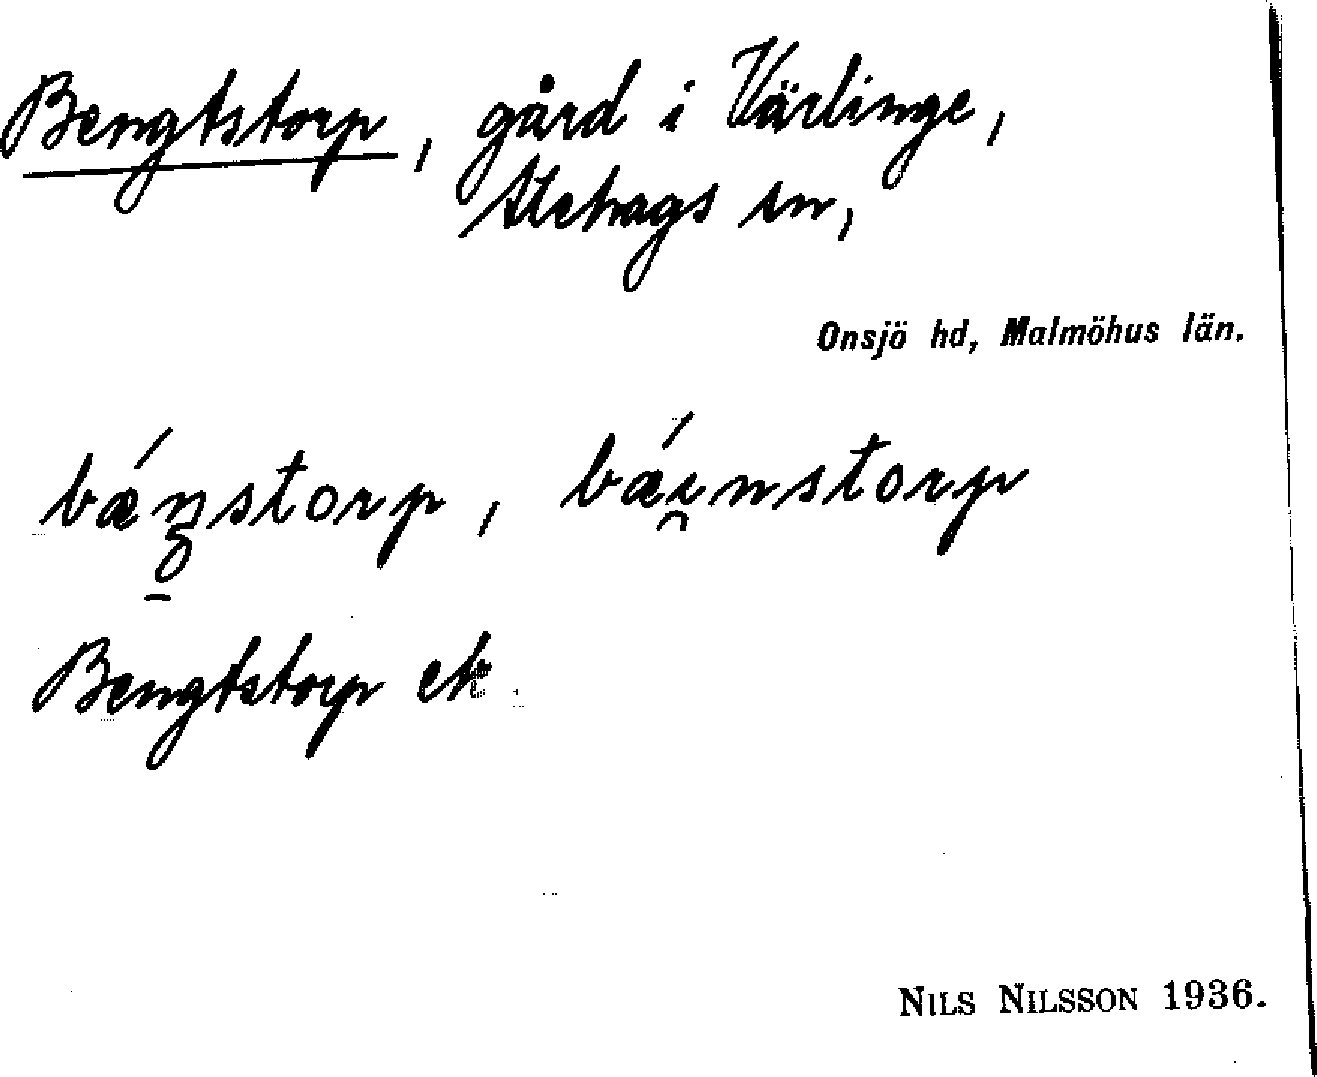 Bengtstorp, gård i Värlinge,
Stehags sn,
Onsjö hd, Malmöhus län.
bǽŋ̱storp, bǽi̯nstorp
Bengtstorp ek
NILS NILSSON 1936.